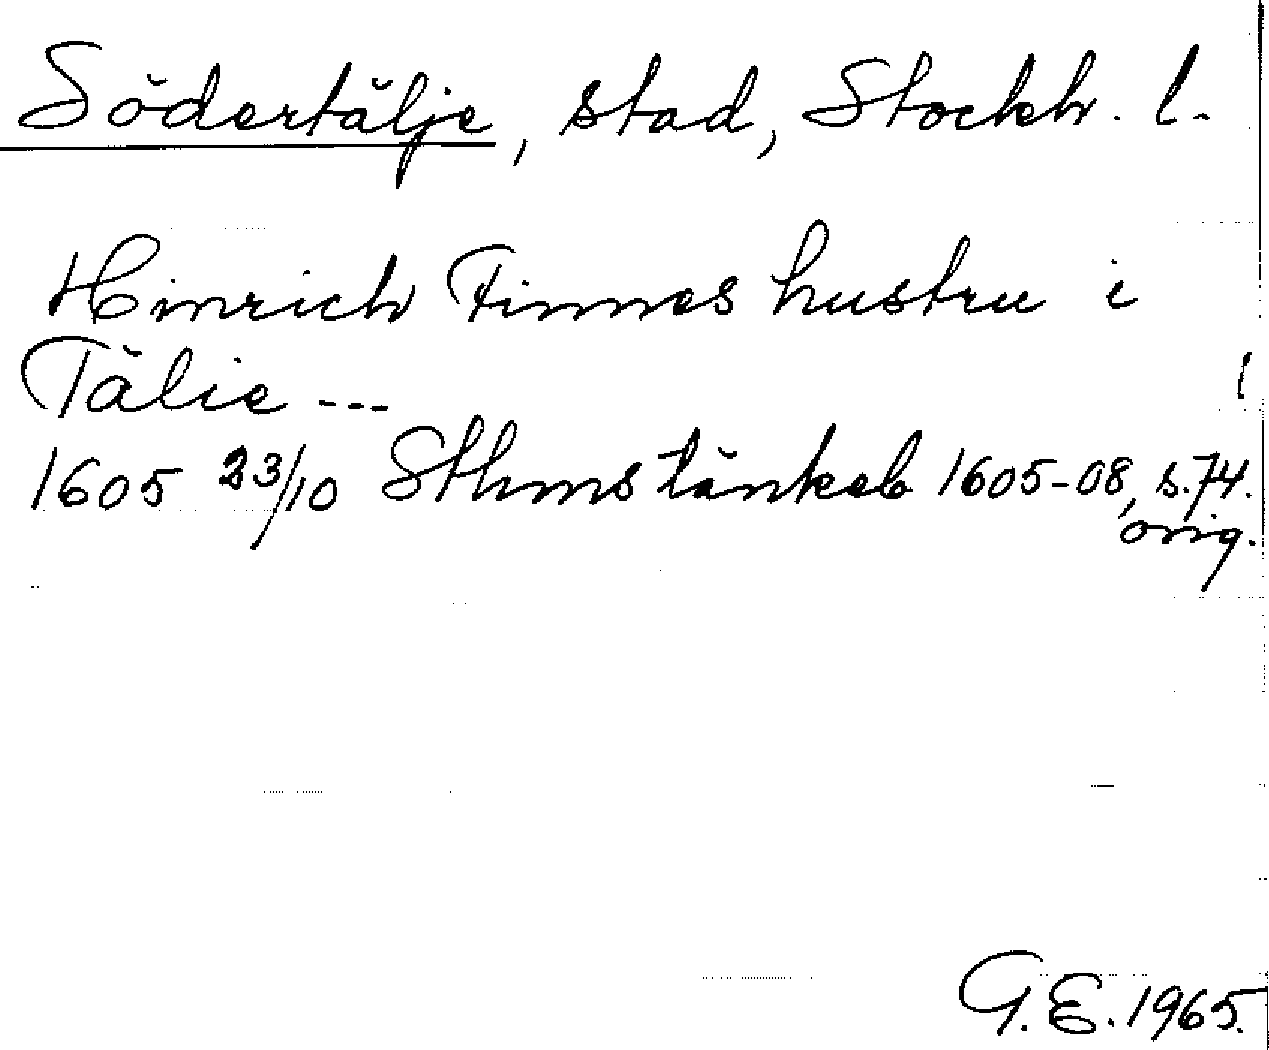 Södertälje, stad, Stockh. l.
Hinrich Finnes hustru i
Tälie ---
1605 23/10 Sthms tänkeb 1605-08, s. 74.
orig.
G. E. 1965.